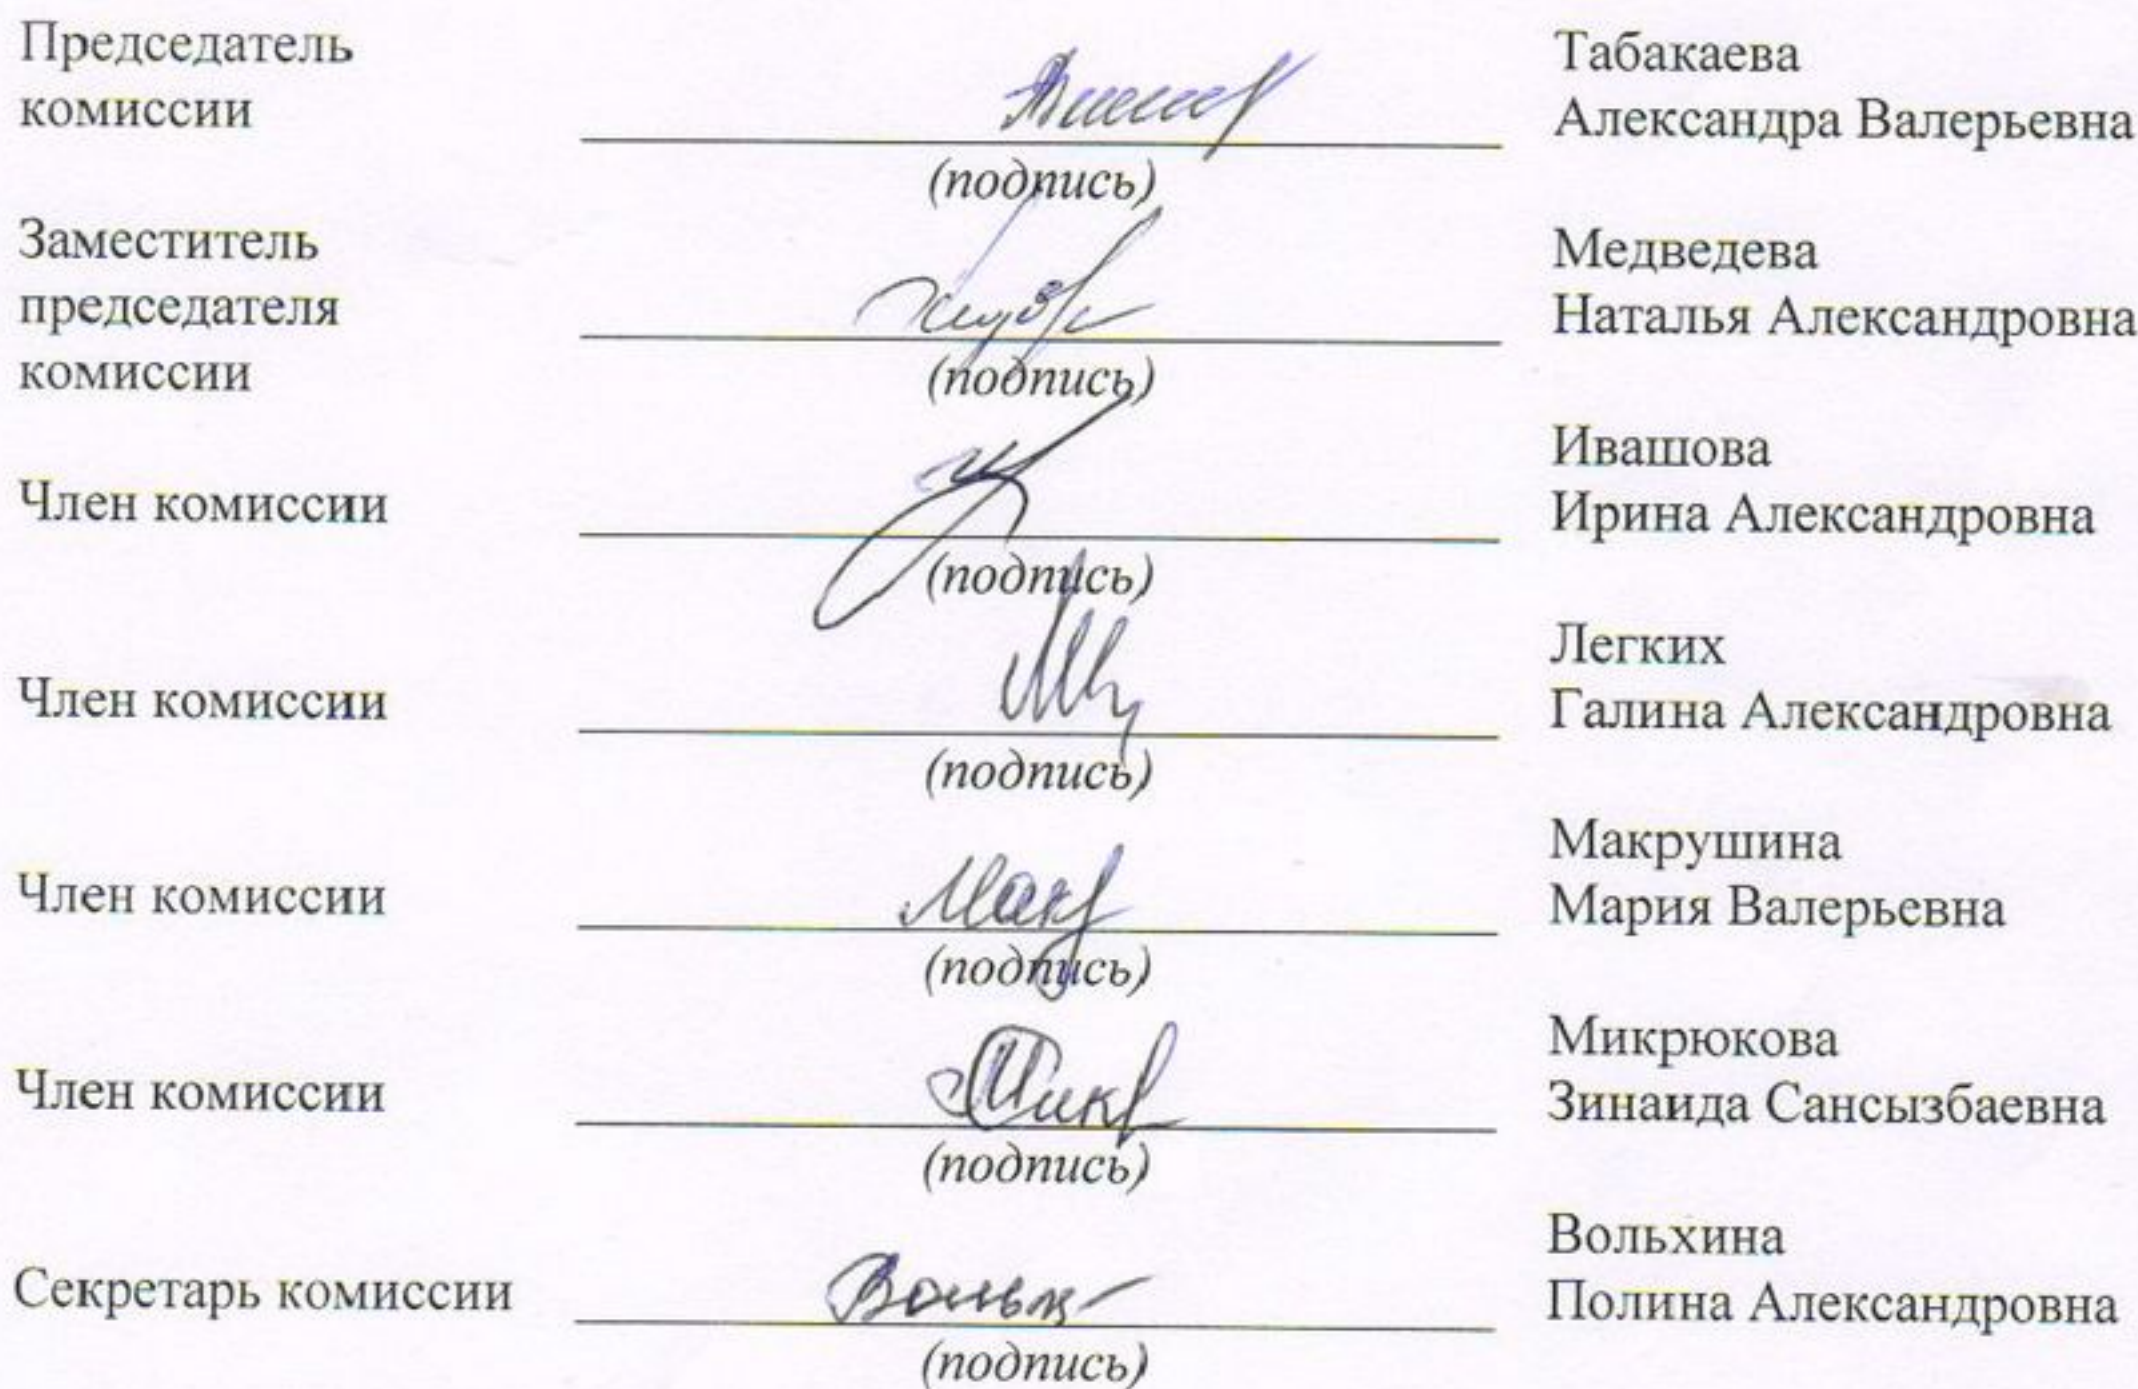 Председатель
комиссии
(подпись)
Табакаева
Александра Валерьевна
Заместитель
председателя
комиссии
(подпись)
Медведева
Наталья Александровна
Член комиссии
(подпись)
Ивашова
Ирина Александровна
Член комиссии
(подпись)
Легких
Галина Александровна
Член комиссии
(подпись)
Макрушина
Мария Валерьевна
Член комиссии
(подпись)
Микрюкова
Зинаида Сансызбаевна
Секретарь комиссии
(подпись)
Вольхина
Полина Александровна